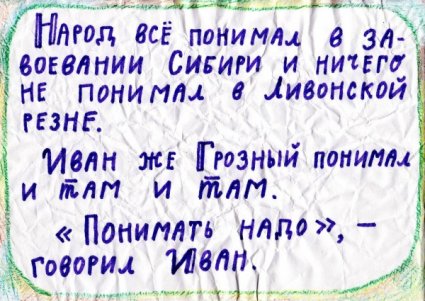 Народ всё понимал в за-
воевании Сибири и ничего
не понимал в Ливонской
резне.
Иван же Грозный понимал
и там и там.
« Понимать надо», –
говорил Иван.